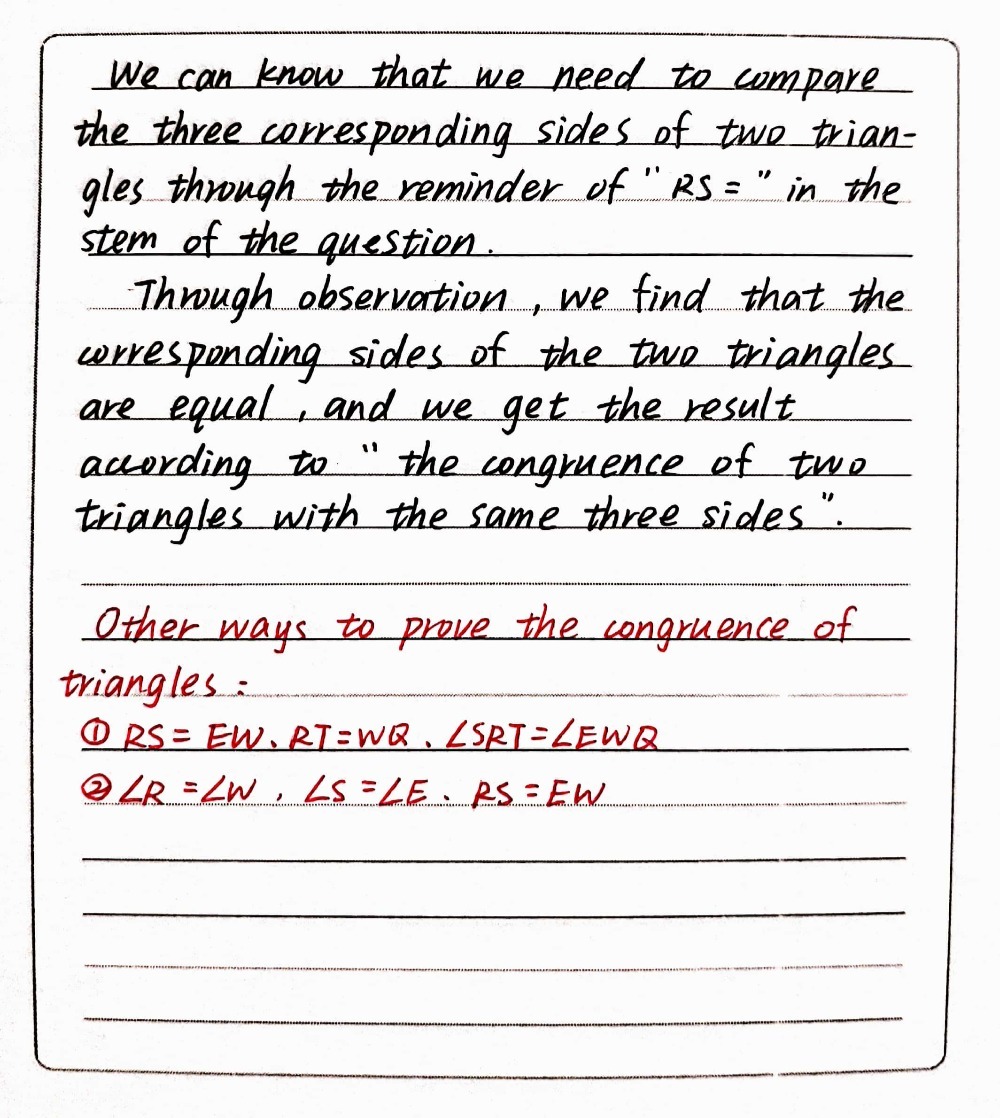 We can know that we need to compare
the three corresponding sides of two trian-
gles through the reminder of " RS = " in the
stem of the question.
Through observation, we find that the
corresponding sides of the two triangles
are equal, and we get the result
according to " the congruence of two
triangles with the same three sides".
Other ways to prove the congruence of
triangles:
① RS = EW. RT=WQ. ∠SRT=∠EWQ
② ∠R =∠W, ∠S =∠E. RS = EW